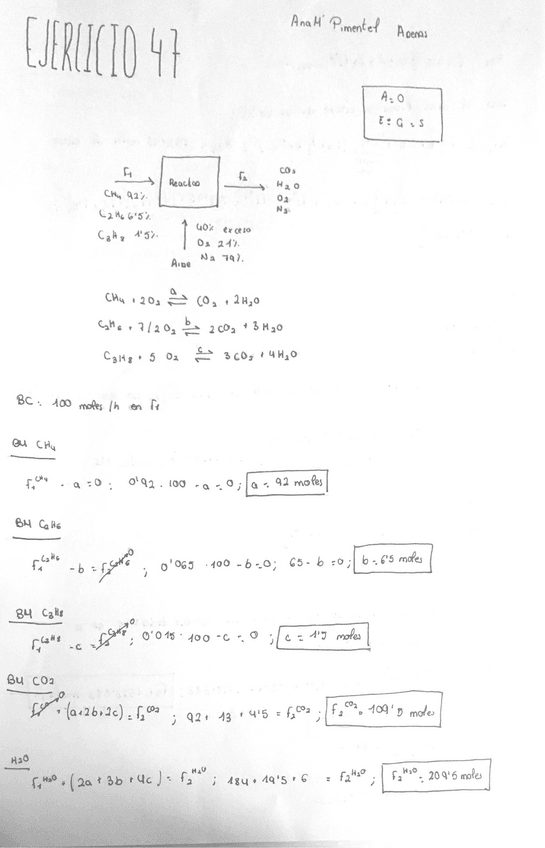 EJERCICIO 47
Ana Mª Pimentel Arenas
A=0
E+G=S
F1
Reactor
F2
CO2
H2O
O2
N2
CH4 92%
C2H6 6'5%
C3H8 1'5%
Aire
40% exceso
O2 21%
N2 79%
CH4 + 2O2 ⇌a CO2 + 2H2O
C2H6 + 7/2 O2 ⇌b 2CO2 + 3H2O
C3H8 + 5 O2 ⇌c 3CO2 + 4H2O
BC: 100 moles/h en F1
BM CH4
F1^CH4 - a = 0; 0'92 · 100 - a = 0; a = 92 moles
BM C2H6
F1^C2H6 - b = F2^C2H6 0; 0'065 · 100 - b = 0; 65 - b = 0; b = 6'5 moles
BM C3H8
F1^C3H8 - c = F2^C3H8 0; 0'015 · 100 - c = 0; c = 1'5 moles
BM CO2
F1^CO2 0 + (a+2b+2c) = F2^CO2; 92 + 13 + 4'5 = F2^CO2; F2^CO2 = 109'5 moles
H2O
F1^H2O + (2a + 3b + 4c) = F2^H2O; 184 + 19'5 + 6 = F2^H2O; F2^H2O = 209'5 moles